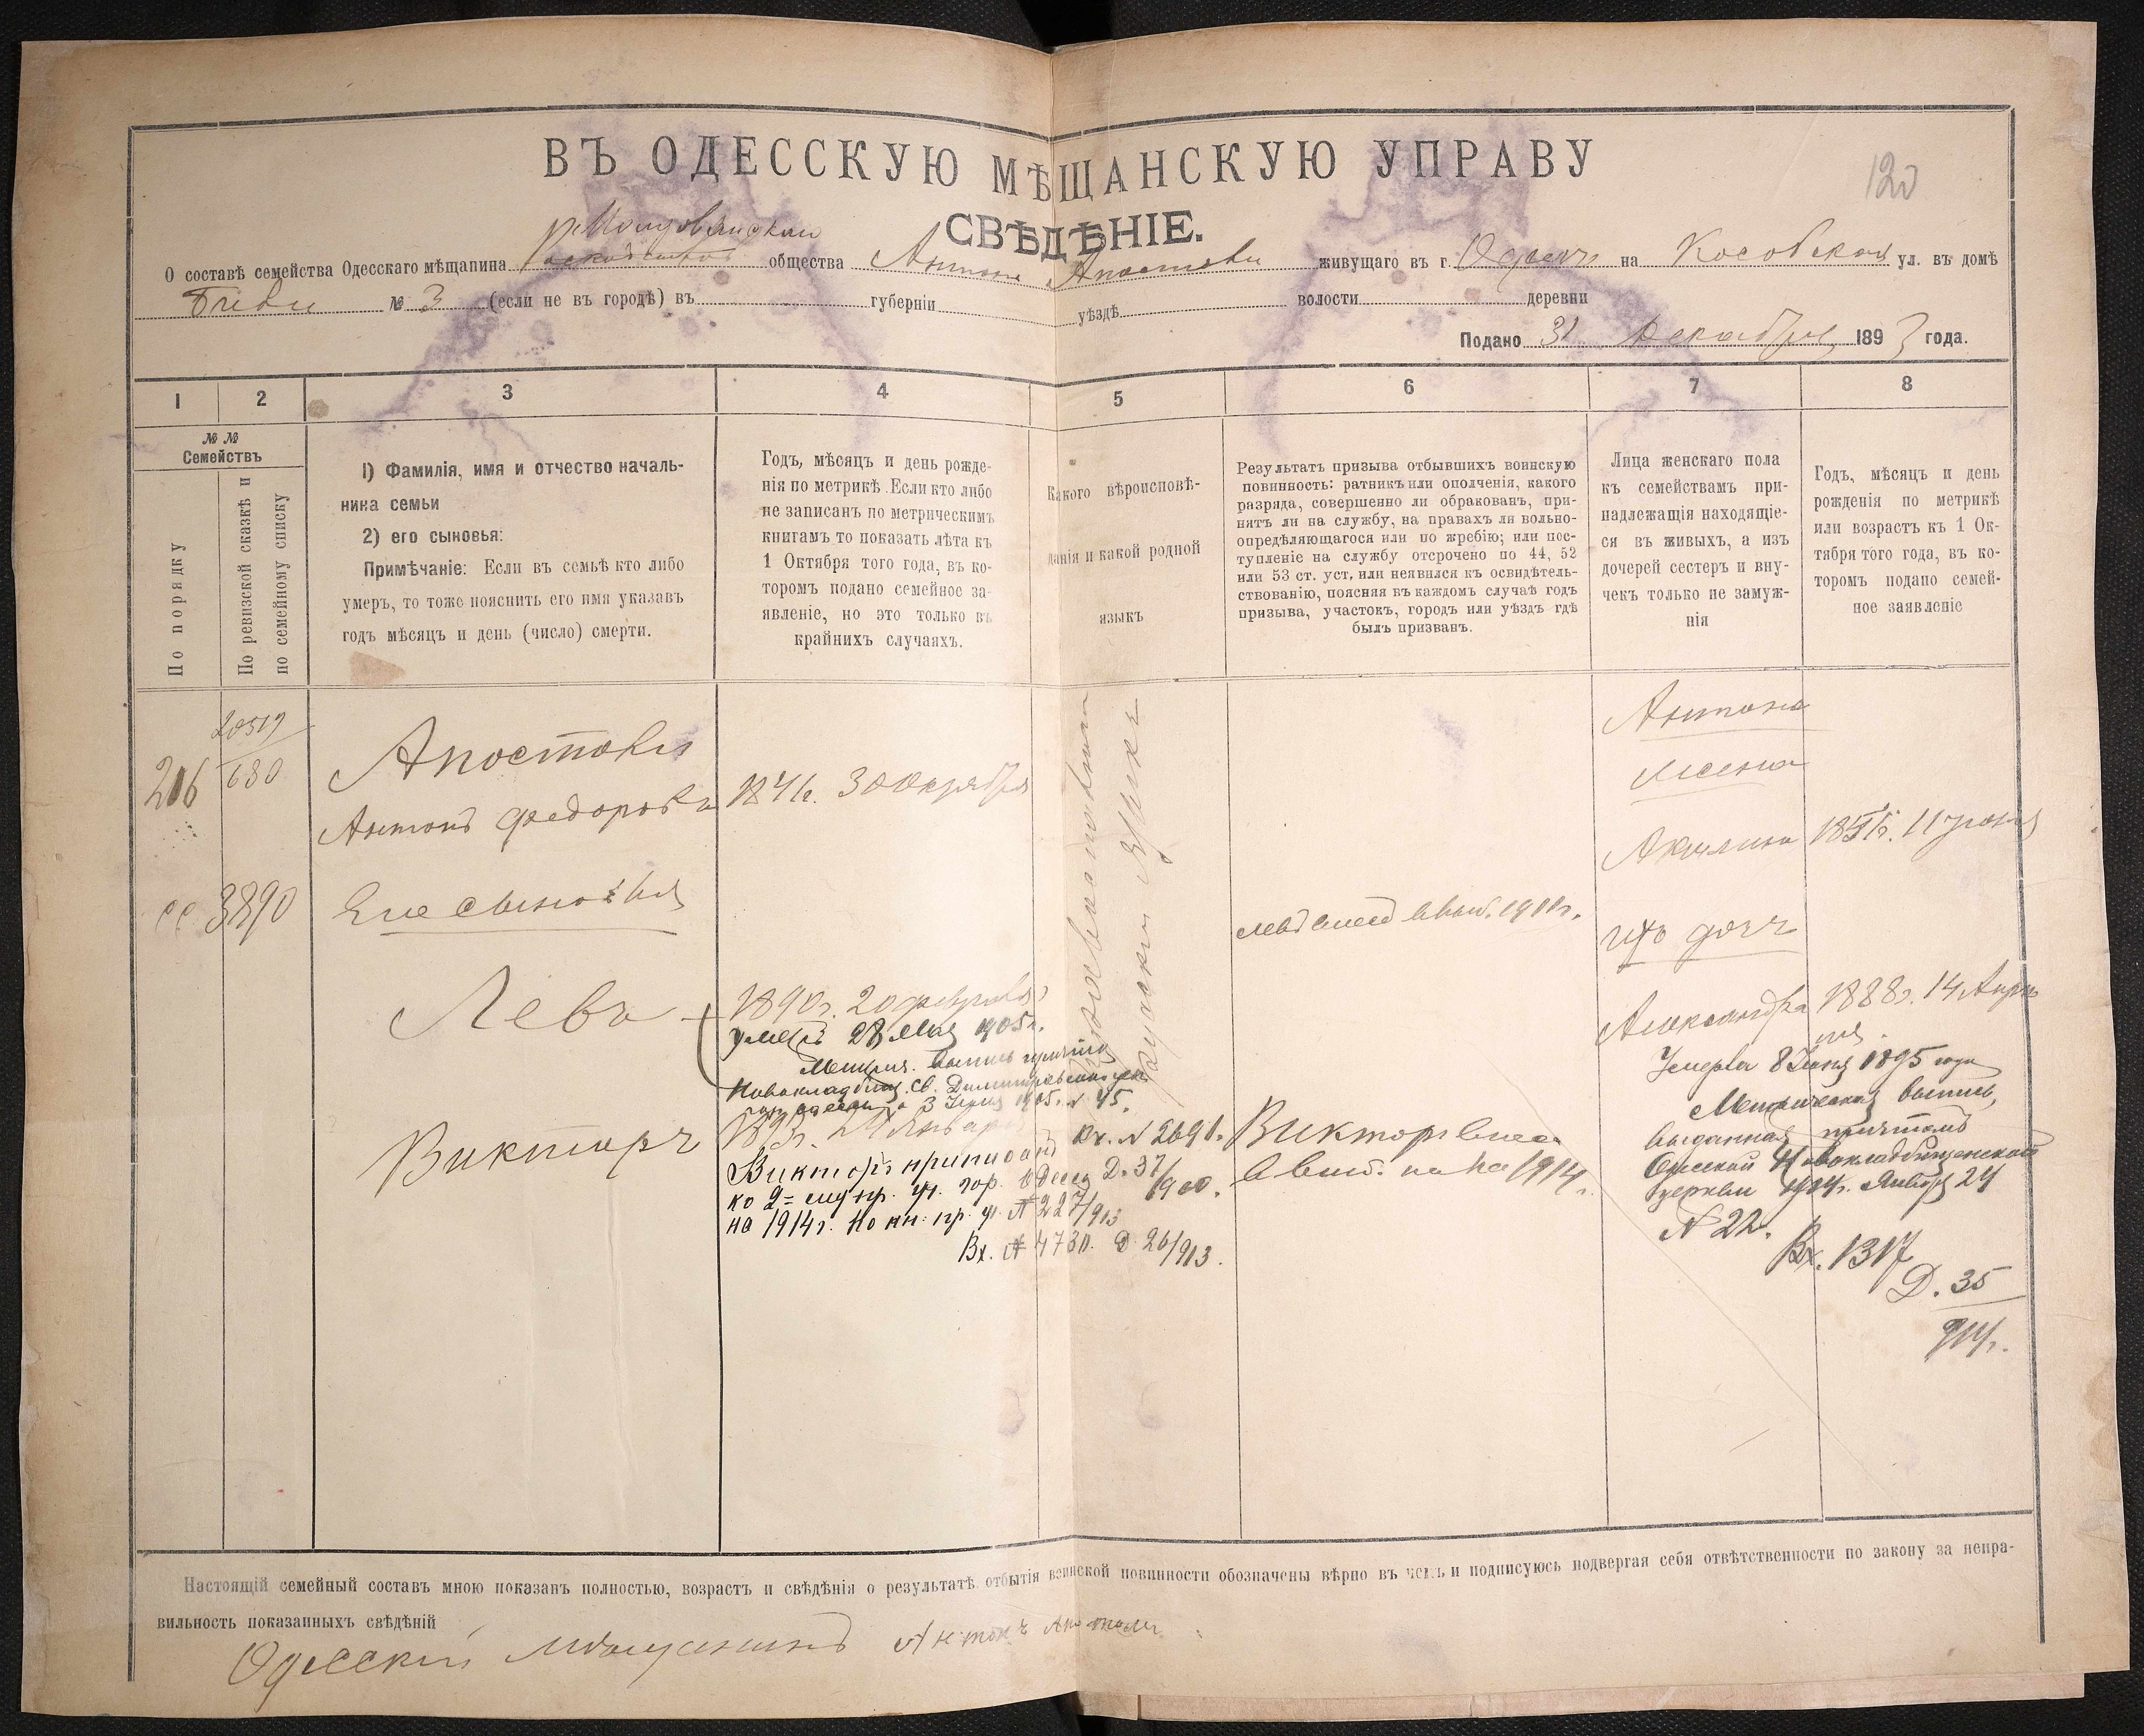 ВЪ ОДЕССКУЮ МѢЩАНСКУЮ УПРАВУ
120
СВѢДѢНІЕ.
О составѣ семейства Одесскаго мѣщанина общества Антона Апостоли живущаго въ г. Одессѣ на Косовской ул. въ домѣ
№ 3 (если не въ городѣ) въ губерніи уѣздѣ волости деревни
Подано 31 Декабря 1893 года.
1 2 3 4 5 6 7 8
№ №
Семействъ
По порядку
По ревизской сказкѣ и
по семейному списку
1) Фамилія, имя и отчество началь-
ника семьи
2) его сыновья:
Примѣчаніе: Если въ семьѣ кто либо
умеръ, то тоже пояснить его имя указавъ
годъ мѣсяцъ и день (число) смерти.
Годъ, мѣсяцъ и день рожде-
нія по метрикѣ. Если кто либо
не записанъ по метрическимъ
книгамъ то показать лѣта къ
1 Октября того года, въ ко-
торомъ подано семейное за-
явленіе, но это только въ
крайнихъ случаяхъ.
Какого вѣроисповѣ-
данія и какой родной
языкъ
Результатъ призыва отбывшихъ воинскую
повинность: ратникъ или ополченія, какого
разряда, совершенно ли обракованъ, при-
нятъ ли на службу, на правахъ ли вольно-
опредѣляющагося или по жребію; или пос-
тупленіе на службу отсрочено по 44, 52
или 53 ст. уст. или неявился къ освидѣтель-
ствованію, поясняя въ каждомъ случаѣ годъ
призыва, участокъ, городъ или уѣздъ гдѣ
былъ призванъ.
Лица женскаго пола
къ семействамъ при-
надлежащія находящіе-
ся въ живыхъ, а изъ
дочерей сестеръ и вну-
чекъ только не замуж-
нія
Годъ, мѣсяцъ и день
рожденія по метрикѣ
или возрастъ къ 1 Ок-
тября того года, въ ко-
торомъ подано семей-
ное заявленіе
216
680
3890
Апостоли
Антонъ Федоровъ
Его сыновья
Левъ
Викторъ
1890г. 20 февраля
умеръ 28 Мая 1905г.
Новокладбищ. св. Димитріевской
3 Іюня 1905г. № 45.
1893г. 24 Января
Вх. № 2690.
Викторъ приписанъ
ко 2му пр. уч. гор. Одесса Д. 37/900.
на 1914г. по кн. пр. у. № 227/913
Вх. № 4730. Д. 26/913.
Русскій Языкъ
1911г.
Викторъ внесен
в выш. на 1914г.
Антона
жена
Акилина
ихъ дочь
Александра 1888г. 14 Апре
ля
Умерла 8 Іюня 1895 года
Метрическая выпись,
выданная причтомъ
Одесской Новокладбищенской
церкви 1914г. Января 24
№ 22.
Вх. 1317
Д. 35
914г.
Настоящій семейный составъ мною показанъ полностью, возрастъ и свѣдѣнія о результатѣ отбытія воинской повинности обозначены вѣрно въ чемъ и подписуюсь подвергая себя отвѣтственности по закону за непра-
вильность показанныхъ свѣдѣній
Одесскій мѣщанинъ Антонъ Апостоли